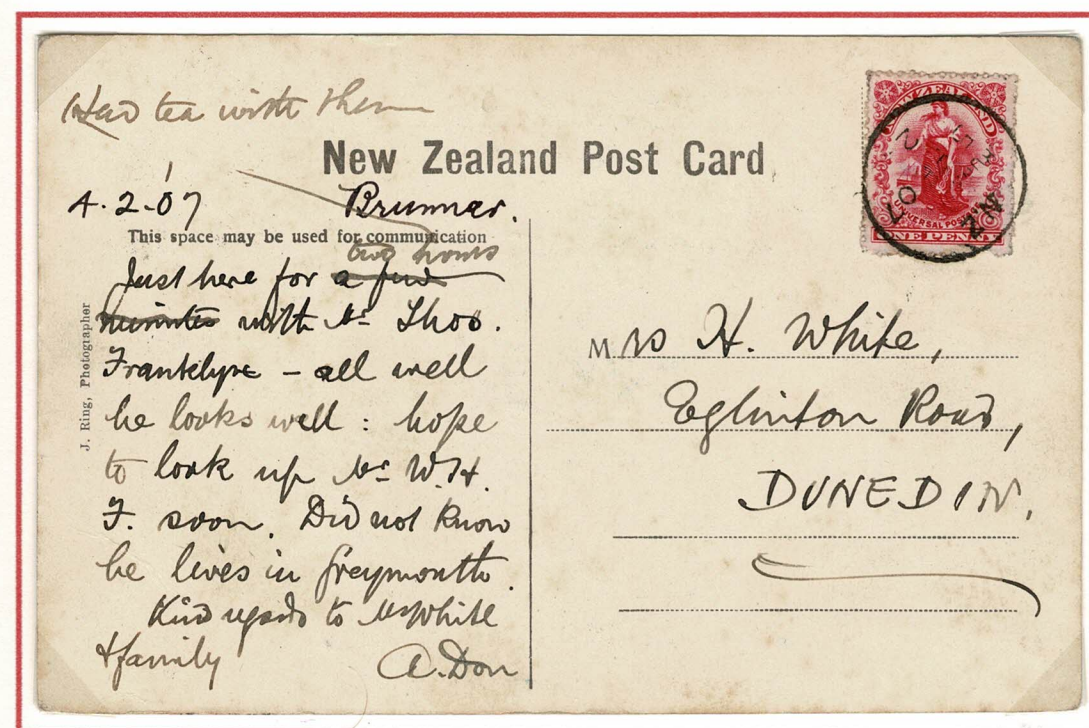 Had tea with them
New Zealand Post Card
4.2.07 Brunner.
This space may be used for communication
two hours
Just here for a few
minutes with Mr Thos.
- all well
he looks well : hope
to look up Mr W.H.
F. soon. Did not know
he lives in Greymouth.
Kind regards to Mr White
& family A. Don
J. Ring, Photographer
NEW ZEALAND
UNIVERSAL POSTAGE
ONE PENNY
N.Z
Mrs H. White,
Eglinton Road,
DUNEDIN.